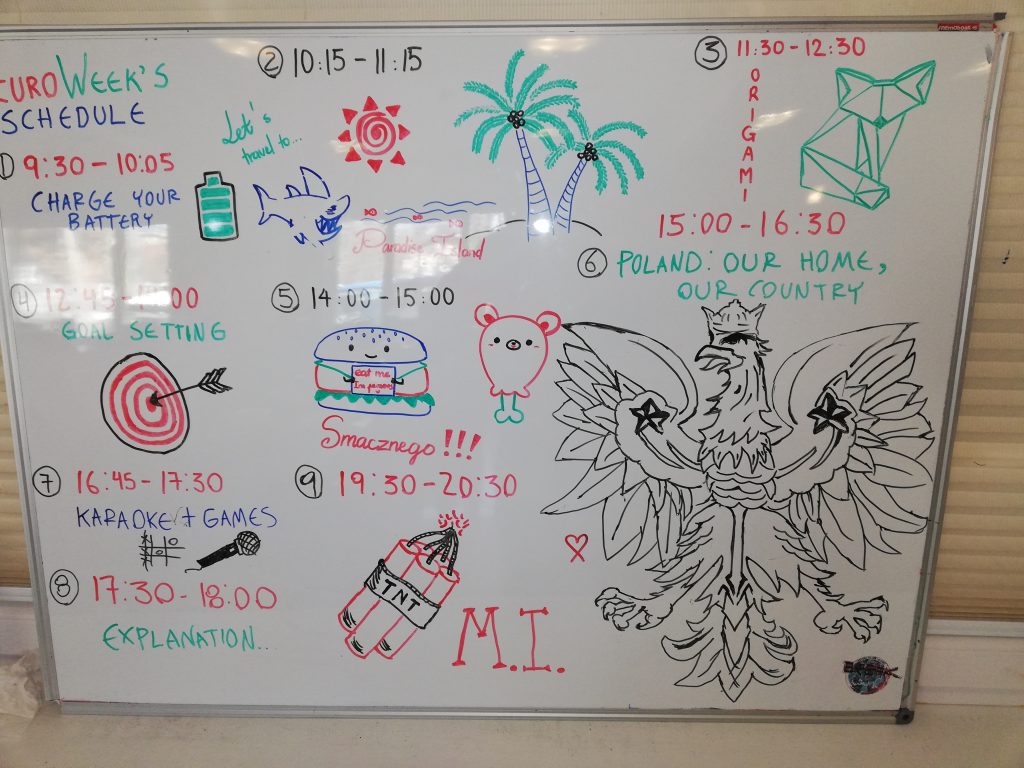 EUROWEEK'S
SCHEDULE
① 9:30 - 10:05
CHARGE YOUR
BATTERY
② 10:15 - 11:15
Let's
travel to...
Paradise Island
③ 11:30 - 12:30
ORIGAMI
④ 12:45 - 14:00
GOAL SETTING
⑤ 14:00 - 15:00
eat me
Smacznego !!!
15:00 - 16:30
⑥ POLAND: OUR HOME,
OUR COUNTRY
⑦ 16:45 - 17:30
KARAOKE + GAMES
⑧ 17:30 - 18:00
EXPLANATION...
⑨ 19:30 - 20:30
TNT
M.I.